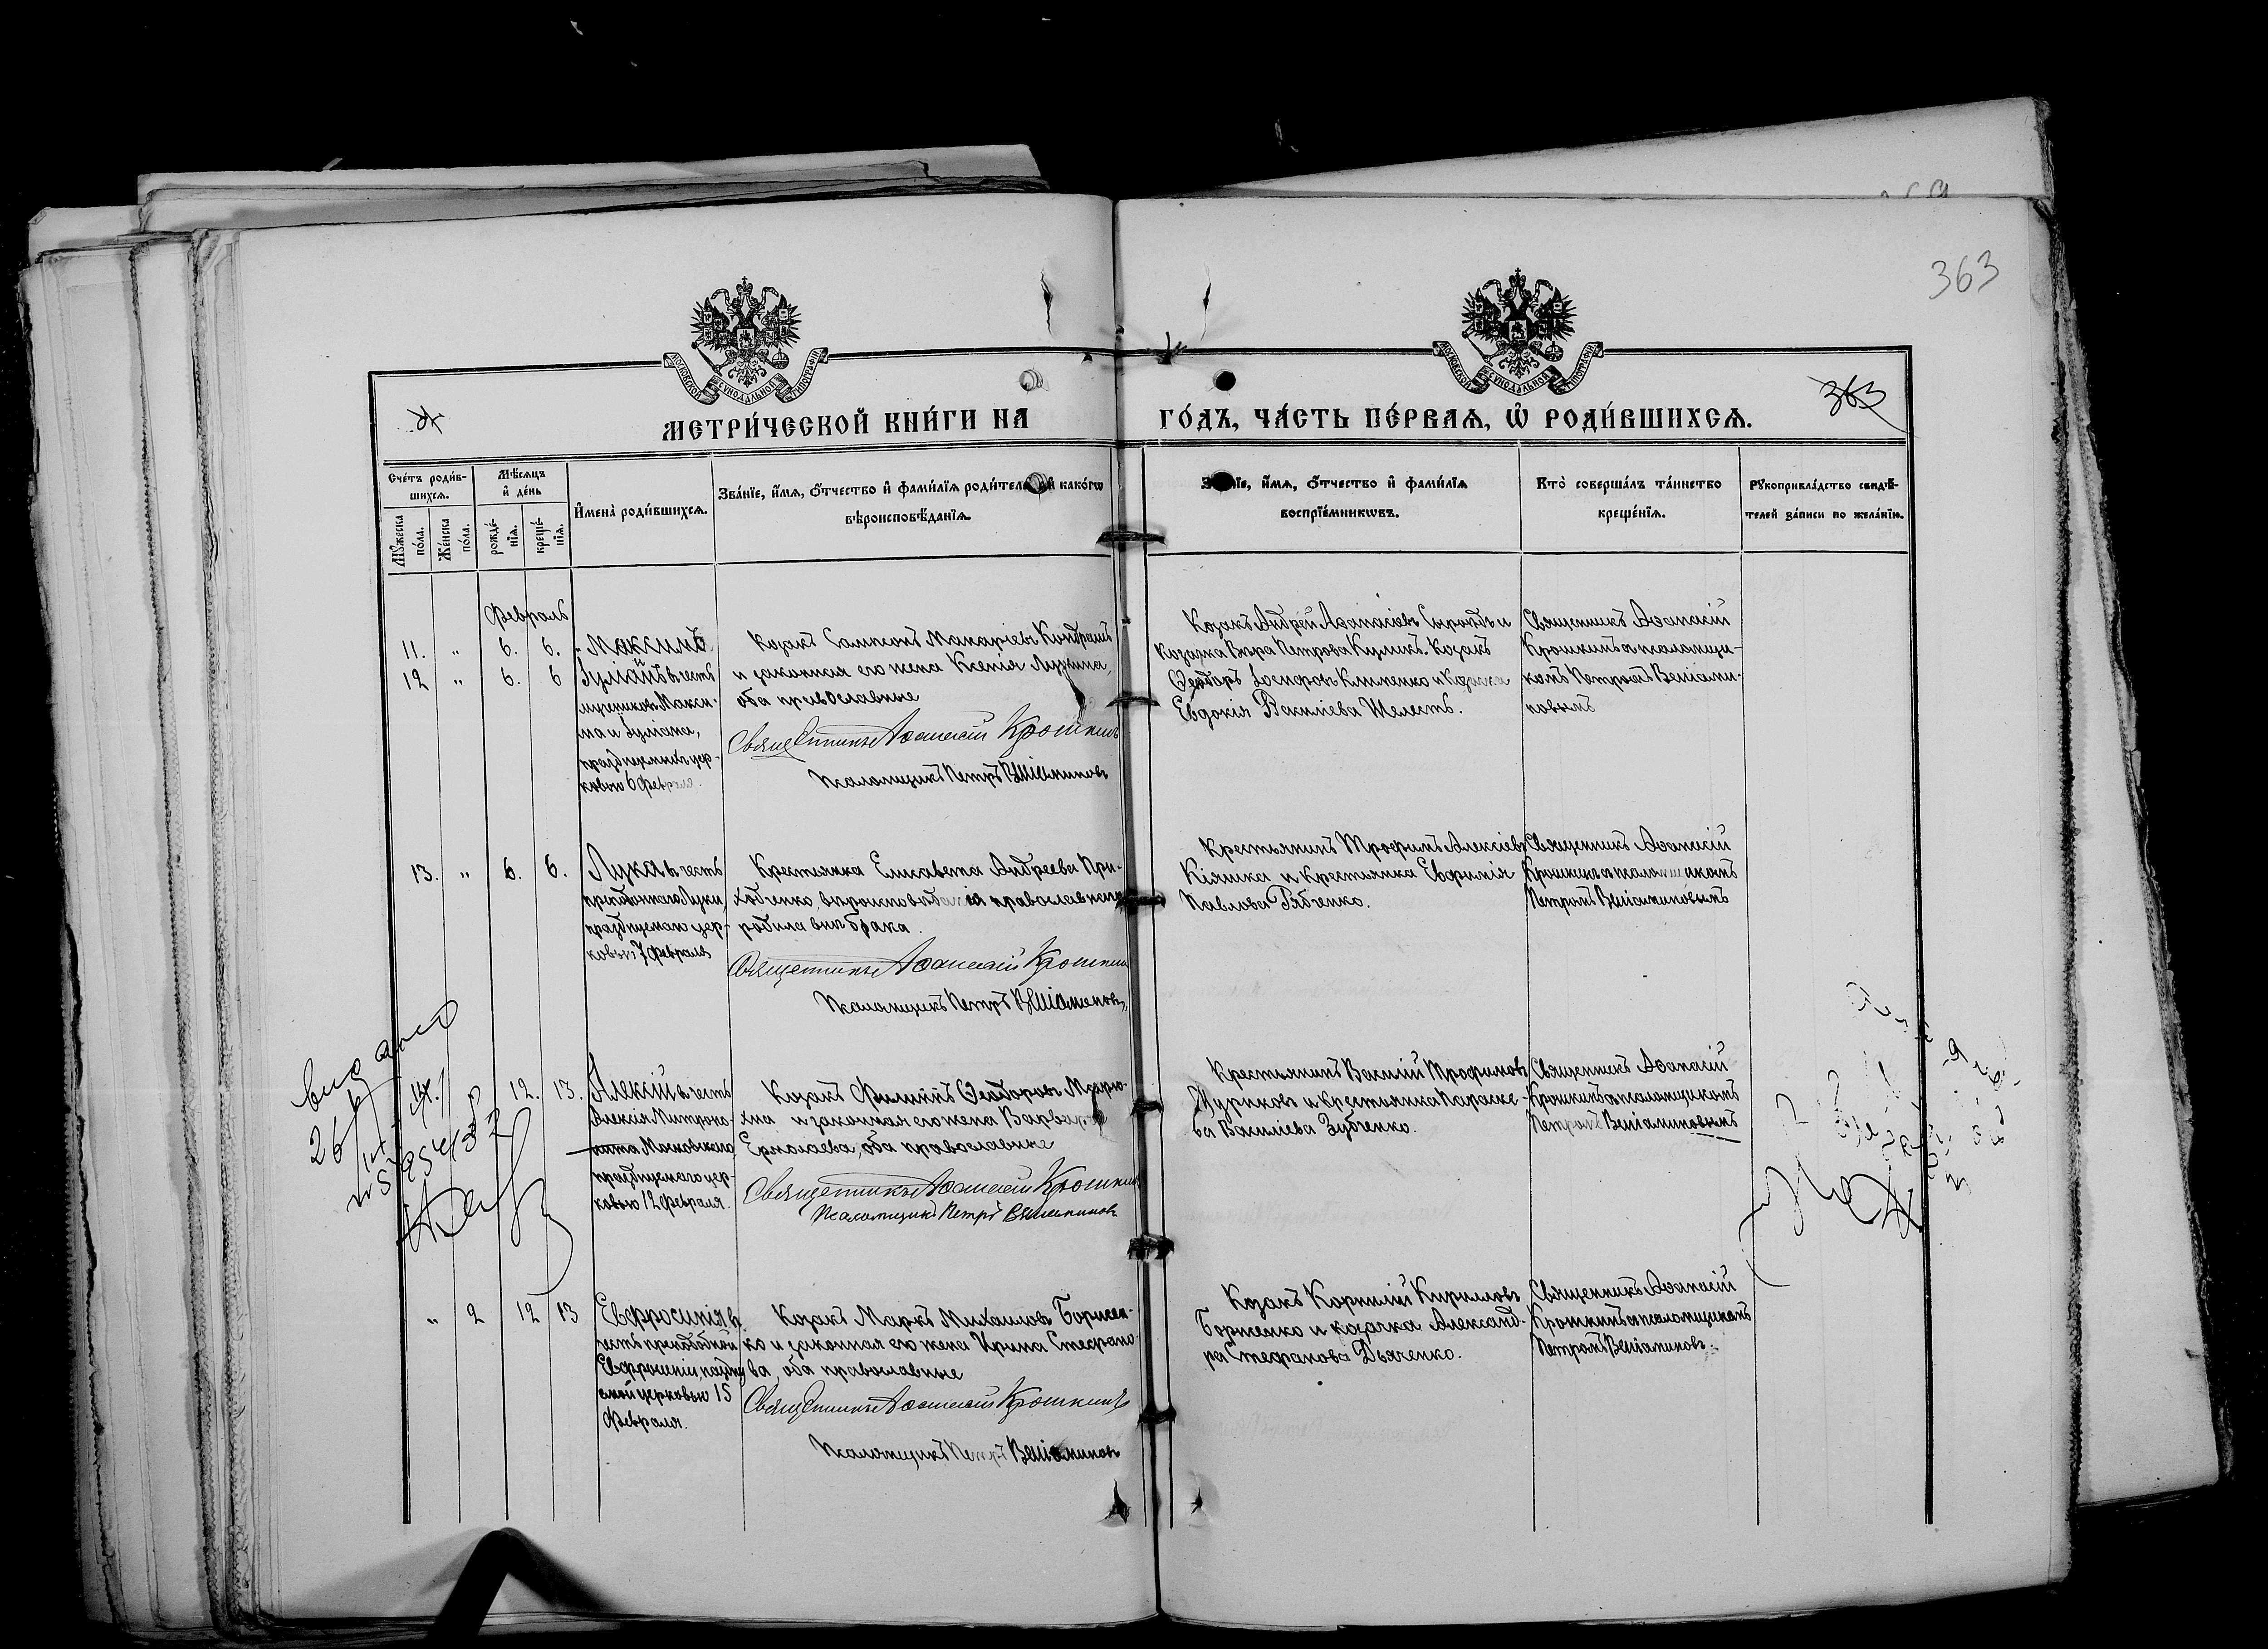 363
МОСКОВСКОЙ СѴНОДАЛЬНОЙ ТИПОГРАФІИ
МОСКОВСКОЙ СѴНОДАЛЬНОЙ ТИПОГРАФІИ
363
МЕТРИ́ЧЕСКОЙ КНИ́ГИ НА ГО́ДЪ, ЧА́СТЬ ПЕ́РВАѦ, Ѡ РОДИ́ВШИХСѦ.
Сче́тъ роди́в-
шихсѧ.
Мꙋ́жеска
по́ла.
Же́нска
по́ла.
Мѣ́сѧцъ
и҆ де́нь
рожде́-
нїѧ.
креще́-
нїѧ.
И҆мена̀ роди́вшихсѧ.
Зва́нїе, и҆́мѧ, ѻ҆́тчество и҆ фами́лїѧ роди́теле и҆ како́гѡ
вѣроисповѣ́данїѧ.
и҆́мѧ, ѻ҆́тчество и҆ фами́лїѧ
воспрїе́мникѡвъ.
Кто̀ соверша́лъ та́инство
креще́нїѧ.
Рꙋкоприкла́дство свидѣ́-
телей за́писи по жела́нїю.
Февраль
11. " 6. 6. Максимъ
12 " 6. 6 Іуліанъ въ честь
мучениковъ Макси-
ма и Іуліана,
цер-
ковью 6 Февраля.
Козакъ Сампсонъ Макаріевъ Кондрашъ
и законная его жена Ксенія Лукина,
оба православные
Священникъ Аѳанасій Крошкинъ
Псаломщикъ Петръ Веніаминовъ
Козакъ Андрей Аѳанасіевъ и
Козачка Вѣра Петрова Куликъ. Козакъ
Ѳеодоръ Іосифовъ Клименко и Козачка
Евдокія Василіева Шелестъ.
Священникъ Аѳанасій
Крошкинъ съ псаломщи-
комъ Петромъ Веніами-
новымъ
13. " 6. 6. Лука въ честь
преподобнаго Луки,
празднуемаго цер-
ковью 7 Февраля
Крестьянка Елисавета Андреева При-
ходченко, вѣроисповѣданія православнаго
родила внѣ брака.
Священникъ Аѳанасій Крошкинъ
Псаломщикъ Петръ Веніаминовъ
Крестьянинъ Трофимъ Алексіевъ
Кіяшка и Крестьянка Евфимія
Павлова Рябченко.
Священникъ Аѳанасій
Крошкинъ съ псаломщикомъ
Петромъ Веніаминовымъ
видано
26
14. " 12. 13. Алексій въ честь
Алексія Митропо-
лита Московскаго,
празднуемаго цер-
ковью 12 Февраля.
Козакъ Филиппъ Ѳеодоровъ
и законная его жена Варвара
Ермолаева, оба православные
Священникъ Аѳанасій Крошкинъ
Псаломщикъ Петръ Веніаминовъ
Крестьянинъ Василій Трофимовъ
и Крестьянка Параске-
ва Василіева Зубченко.
Священникъ Аѳанасій
Крошкинъ съ псаломщикомъ
Петромъ Веніаминовымъ
" 2 12 13 Евфросинія въ
честь преподобной
Евфросиніи, праздну
емой церковью 15
Февраля.
Козакъ Маркъ Михаиловъ Борисен-
ко и законная его жена Ирина Стефано-
ва, оба православные
Священникъ Аѳанасій Крошкинъ
Псаломщикъ Петръ Веніаминовъ
Козакъ Корнилій Кирилловъ
Борисенко и козачка Александ-
ра Стефанова Дьяченко.
Священникъ Аѳанасій
Крошкинъ съ псаломщикомъ
Петромъ Веніаминовъ.